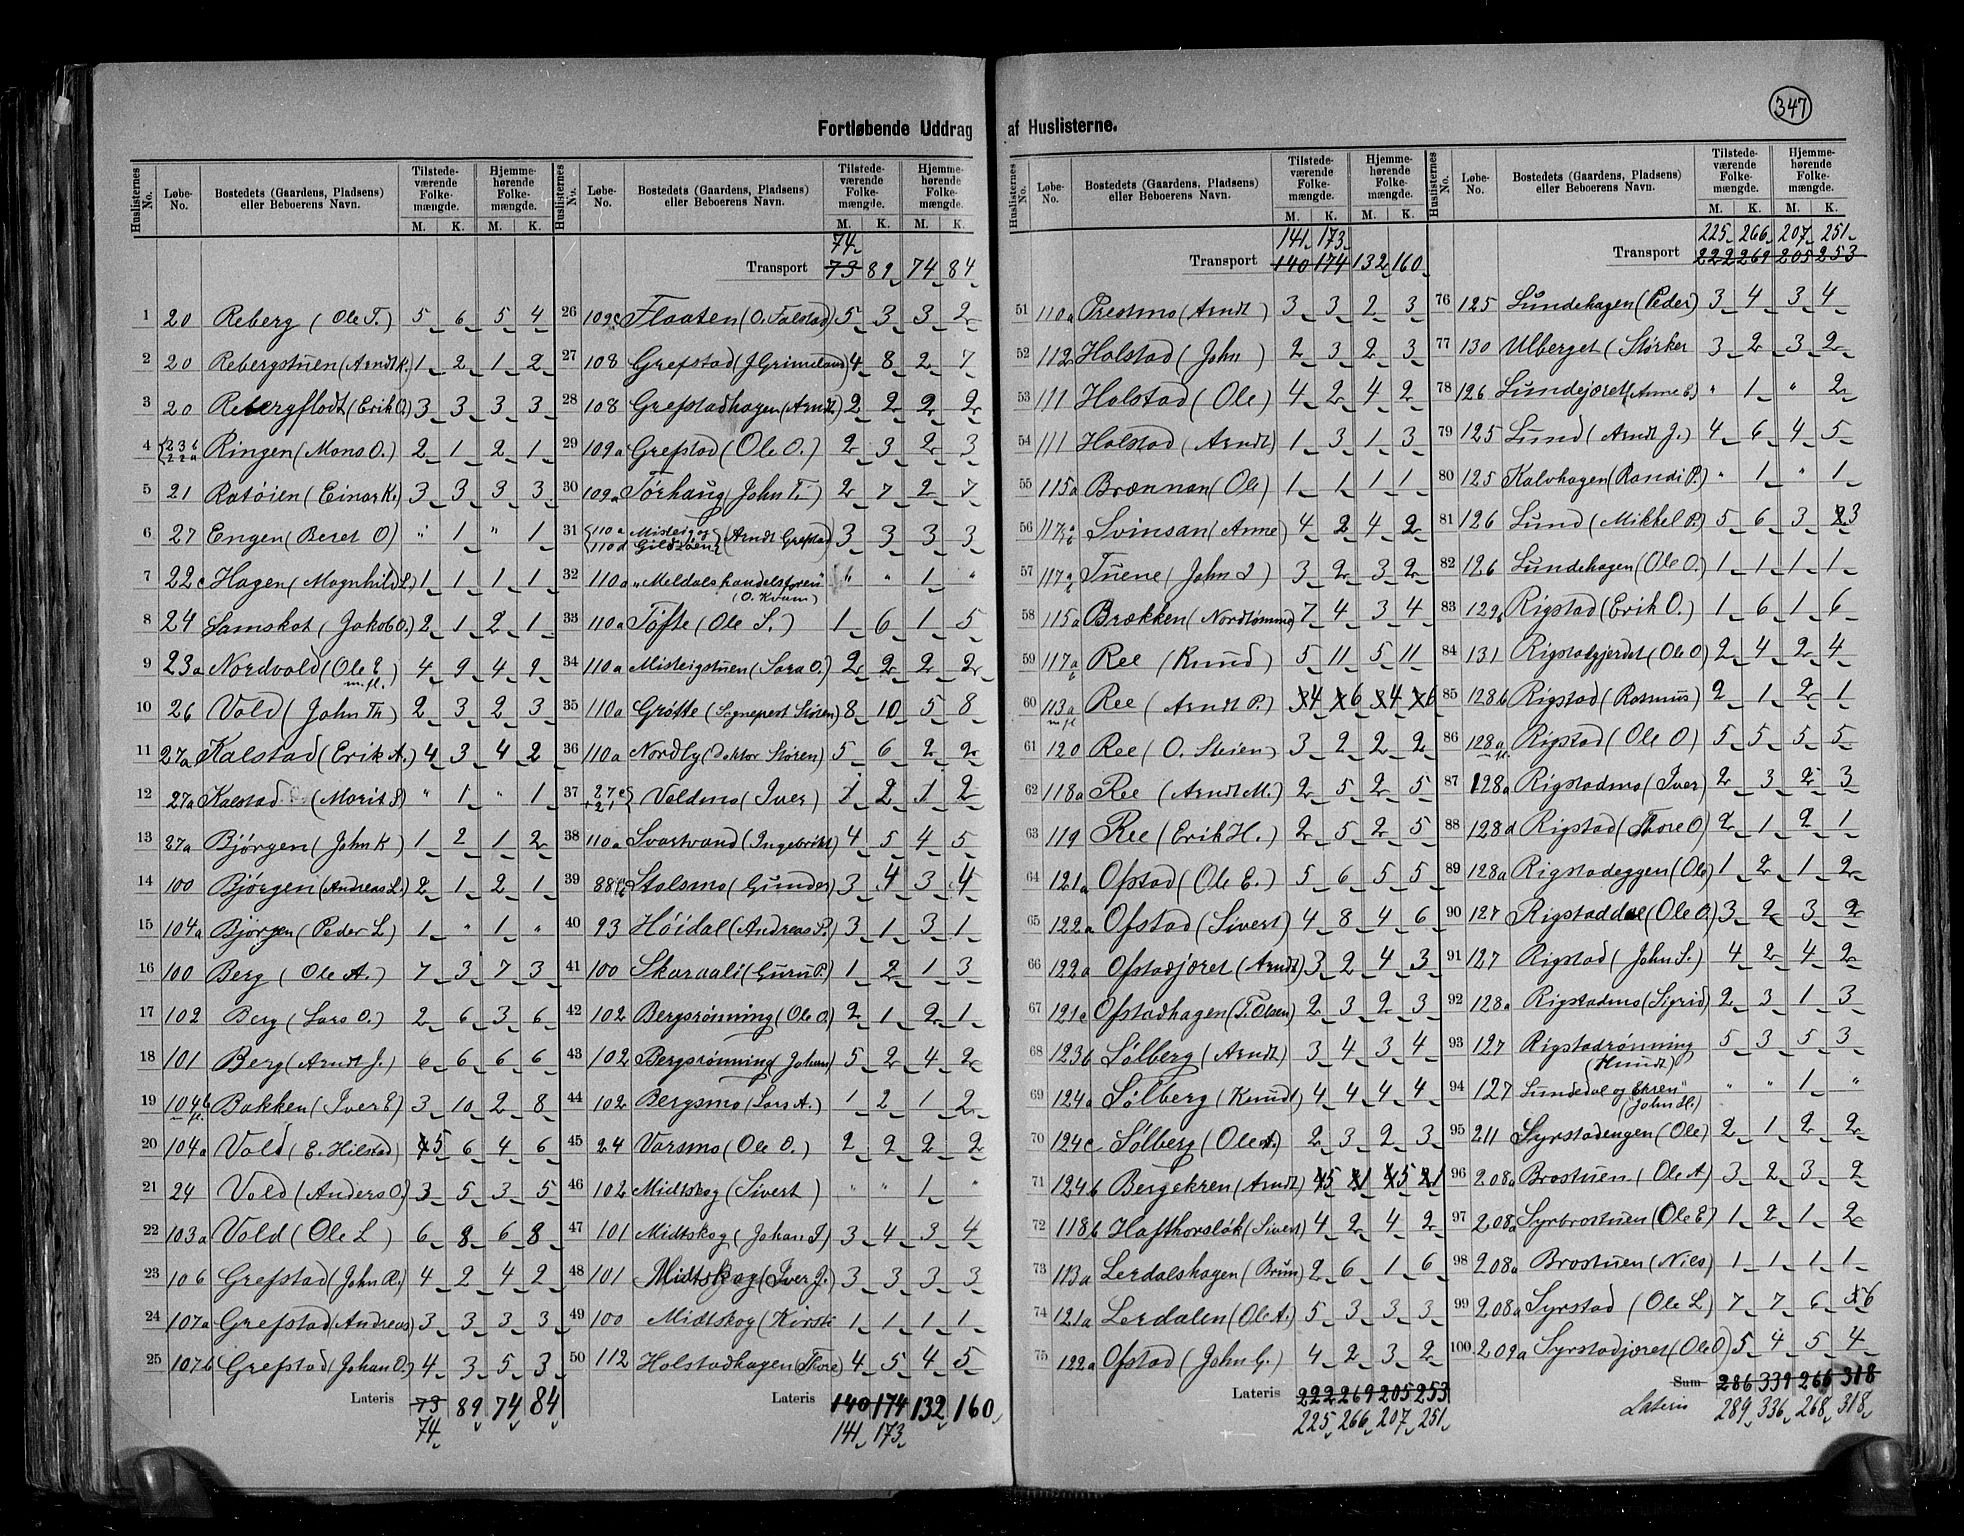 347
Fortløbende Uddrag af Huslisterne.
Huslisternes No. | Løbe-No. | Bostedets (Gaardens, Pladsens) eller Beboerens Navn. | Tilstedeværende Folkemængde. M. K. | Hjemmehørende Folkemængde. M. K.
1 20 Reberg (Ole T.) 5 6 5 4
2 20 Rebergstuen (Arndt K. 1 2 1 2
3 20 Rebergflodt (Erik O.) 3 3 3 3
4 Ringen (Mons O.) 2 1 2 1
5 21 Ratøien (Einar K.) 3 3 3 3
6 27 Engen (Beret O) " 1 " 1
7 22c Hagen (Magnhild L.) 1 1 1 1
8 24 Lamskot (Jakob O. 2 1 2 1
9 23a Nordvold (Ole E. m.fl. 4 9 4 9
10 26 Vold (John Th) 2 3 2 3
11 27a Kalstad (Erik A.) 4 3 4 2
12 27a Kalstad (Marit " 1 " 1
13 27a Bjørgen (John K) 1 2 1 2
14 100 Bjørgen (Andreas L.) 2 1 2 1
15 104a Bjørgen (Peder L) 1 " 1 "
16 100 Berg (Ole A.) 7 3 7 3
17 102 Berg (Lars O.) 2 6 3 6
18 101 Berg (Arndt J.) 6 6 6 6
19 104b Bakken (Iver E) 3 10 2 8
20 104a Vold (E. Hilstad) 5 6 4 6
21 24 Vold (Anders O.) 3 5 3 5
22 103a Vold (Ole L) 6 8 6 8
23 106 Grefstad (John R.) 4 2 4 2
24 107a Grefstad (Andreas) 3 3 3 3
25 107b Grefstad (Johan O.) 4 3 5 3
Lateris 73 89 74 84
74
74
Transport 73 89 74 84
26 109c Flaaten (O. Falstad) 5 3 3 2
27 108 Grefstad (J Grimeland) 4 8 2 7
28 108 Grefstadhagen (Arndt) 2 2 2 2
29 109a Grefstad (Ole O.) 2 3 2 3
30 109a Tørhaug (John T.) 2 7 2 7
31 110a 110d Misteig og (Arndt Grefstad 3 3 3 3
32 110a "Meldals handelsforen" (O. Kvam) " " 1 "
33 110a Tøfte (Ole S.) 1 6 1 5
34 110a Misteigstuen (Sara O.) 2 2 2 2
35 110a Grøtte (Sogneprest Støren) 8 10 5 8
36 110a Nordby (Doktor Støren) 5 6 2 2
37 Voldmo (Iver) 1 2 1 2
38 110a Svartvand (Ingebrikt) 4 5 4 5
39 Stolsmo (Gunder) 3 4 3 4
40 93 Høidal (Andreas P.) 3 1 3 1
41 100 Skaraali (Guru P. 1 2 1 3
42 102 Bergsrønning (Ole O. 2 1 2 1
43 102 Bergsrønning (Johan) 5 2 4 2
44 102 Bergsmo (Lars A.) 1 2 1 2
45 24 Varsmo (Ole O.) 2 2 2 2
46 102 Midtskog (Sivert) " " 1 "
47 101 Midtskog (Johan J) 3 4 3 4
48 101 Midtskog (Iver J. 3 3 3 3
49 100 Midtskog (Kirsti 1 1 1 1
50 112 Holstadhagen (Thore 4 5 4 5
Lateris 140 174 132 160
141 173
141 173
Transport 140 174 132 160
51 110a Prestmo (Arndt) 3 3 2 3
52 112 Holstad (John) 2 3 2 3
53 111 Holstad (Ole) 4 2 4 2
54 111 Holstad (Arndt) 1 3 1 3
55 115a Brænnan (Ole) 1 1 1 1
56 Svinsan (Anne) 4 2 4 2
57 Tuene (John I) 3 2 3 2
58 115a Brækken (Nordtømme) 7 4 3 4
59 117a Ree (Knud) 5 11 5 11
60 113a m.fl Ree (Arndt P.) 4 6 4 6
61 120 Ree (O. Steien) 3 2 2 2
62 118a Ree (Arndt M.) 2 5 2 5
63 119 Ree (Erik H.) 2 5 2 5
64 121a Ofstad (Ole E.) 5 6 5 5
65 122a Ofstad (Sivert) 4 8 4 6
66 122a Ofstadjøret (Arndt) 3 2 4 3
67 121c Ofstadhagen (T. Olsen) 2 3 2 3
68 123b Sølberg (Arndt) 3 4 3 4
69 124a Sølberg (Knudt) 4 4 4 4
70 124c Sølberg (Ole A.) 2 3 2 3
71 124b Bergekren (Arndt) 5 1 5 1
72 118b Hafthorsløk (Sivert) 4 2 4 2
73 113a Lerdalshagen (Brun) 2 6 1 6
74 121a Lerdalen (Ole A.) 5 3 3 3
75 122a Ofstad (John G.) 4 2 3 2
Lateris 222 269 205 253
225 266 207 251
225 266 207 251
Transport 222 269 205 253
76 125 Lundehagen (Peder) 3 4 3 4
77 130 Ulberget (Størker 3 2 3 2
78 126 Lundejøret (Anne E.) " 1 " 2
79 125 Lund (Arndt J.) 4 6 4 5
80 125 Kalvhagen (Randi P.) " 1 " 1
81 126 Lund (Mikkel P. 5 6 3 3
82 126 Lundehagen (Ole O.) 1 1 1 1
83 129 Rigstad (Erik O.) 1 6 1 6
84 131 Rigstadgjerdet (Ole O) 2 4 2 4
85 128b Rigstad (Rasmus) 2 1 2 1
86 128a Rigstad (Ole O) 5 5 5 5
87 128a Rigstadmo (Iver) 2 3 2 3
88 128d Rigstad (Thore O) 2 1 2 1
89 128a Rigstadeggen (Ole) 1 2 1 2
90 127 Rigstaddal (Ole O.) 3 2 3 2
91 127 Rigstad (John S.) 4 2 4 2
92 128a Rigstadmo (Sigrid) 2 3 1 3
93 127 Rigstadrønning (Knudt) 5 3 5 3
94 127 Lundedal og Ekren" (John H.) " " 1 "
95 211 Syrstadengen (Ole) 2 1 2 2
96 208a Brostuen (Ole A) 3 2 3 2
97 208a Syrbrostuen (Ole E) 1 2 1 2
98 208a Brostuen (Nils) 1 1 1 1
99 208a Syrstad (Ole L) 7 7 6 6
100 209a Syrstadjøret (Ole O) 5 4 5 4
Sum 286 339 266 318
Lateris 289 336 268 318